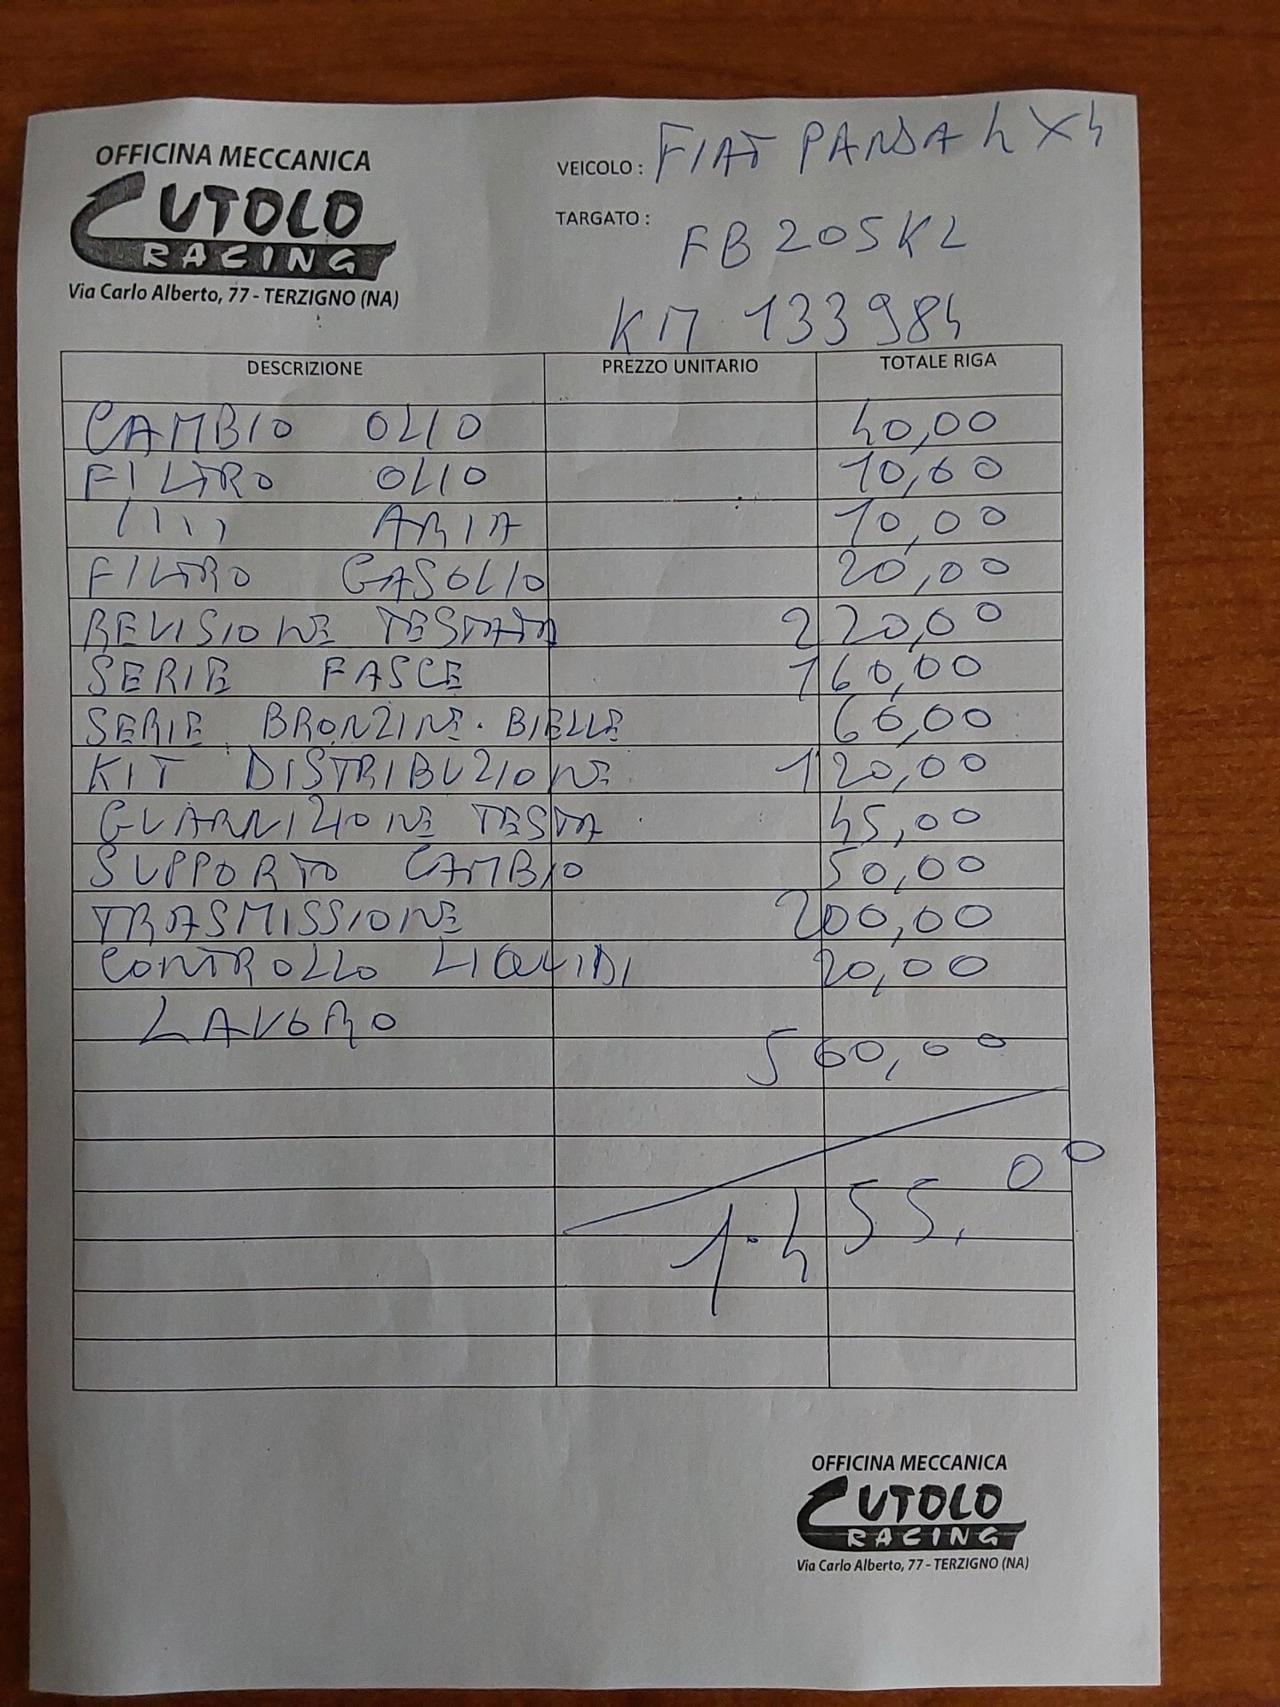 OFFICINA MECCANICA
CUTOLO
RACING
Via Carlo Alberto, 77 - TERZIGNO (NA)
VEICOLO : FIAT PANDA 4X4
TARGATO : FB 205KL
KM 133984
DESCRIZIONE PREZZO UNITARIO TOTALE RIGA
CAMBIO OLIO 40,00
FILTRO OLIO 10,00
//// ARIA 10,00
FILTRO GASOLIO 20,00
REVISIONE TESTATA 220,00
SERIE FASCE 160,00
SERIE BRONZINE. BIELLE 60,00
KIT DISTRIBUZIONE 120,00
GUARNIZIONE TESTA 45,00
SUPPORTO CAMBIO 50,00
TRASMISSIONE 200,00
CONTROLLO LIQUIDI 20,00
LAVORO 500,00
1.455,00
OFFICINA MECCANICA
CUTOLO
RACING
Via Carlo Alberto, 77 - TERZIGNO (NA)